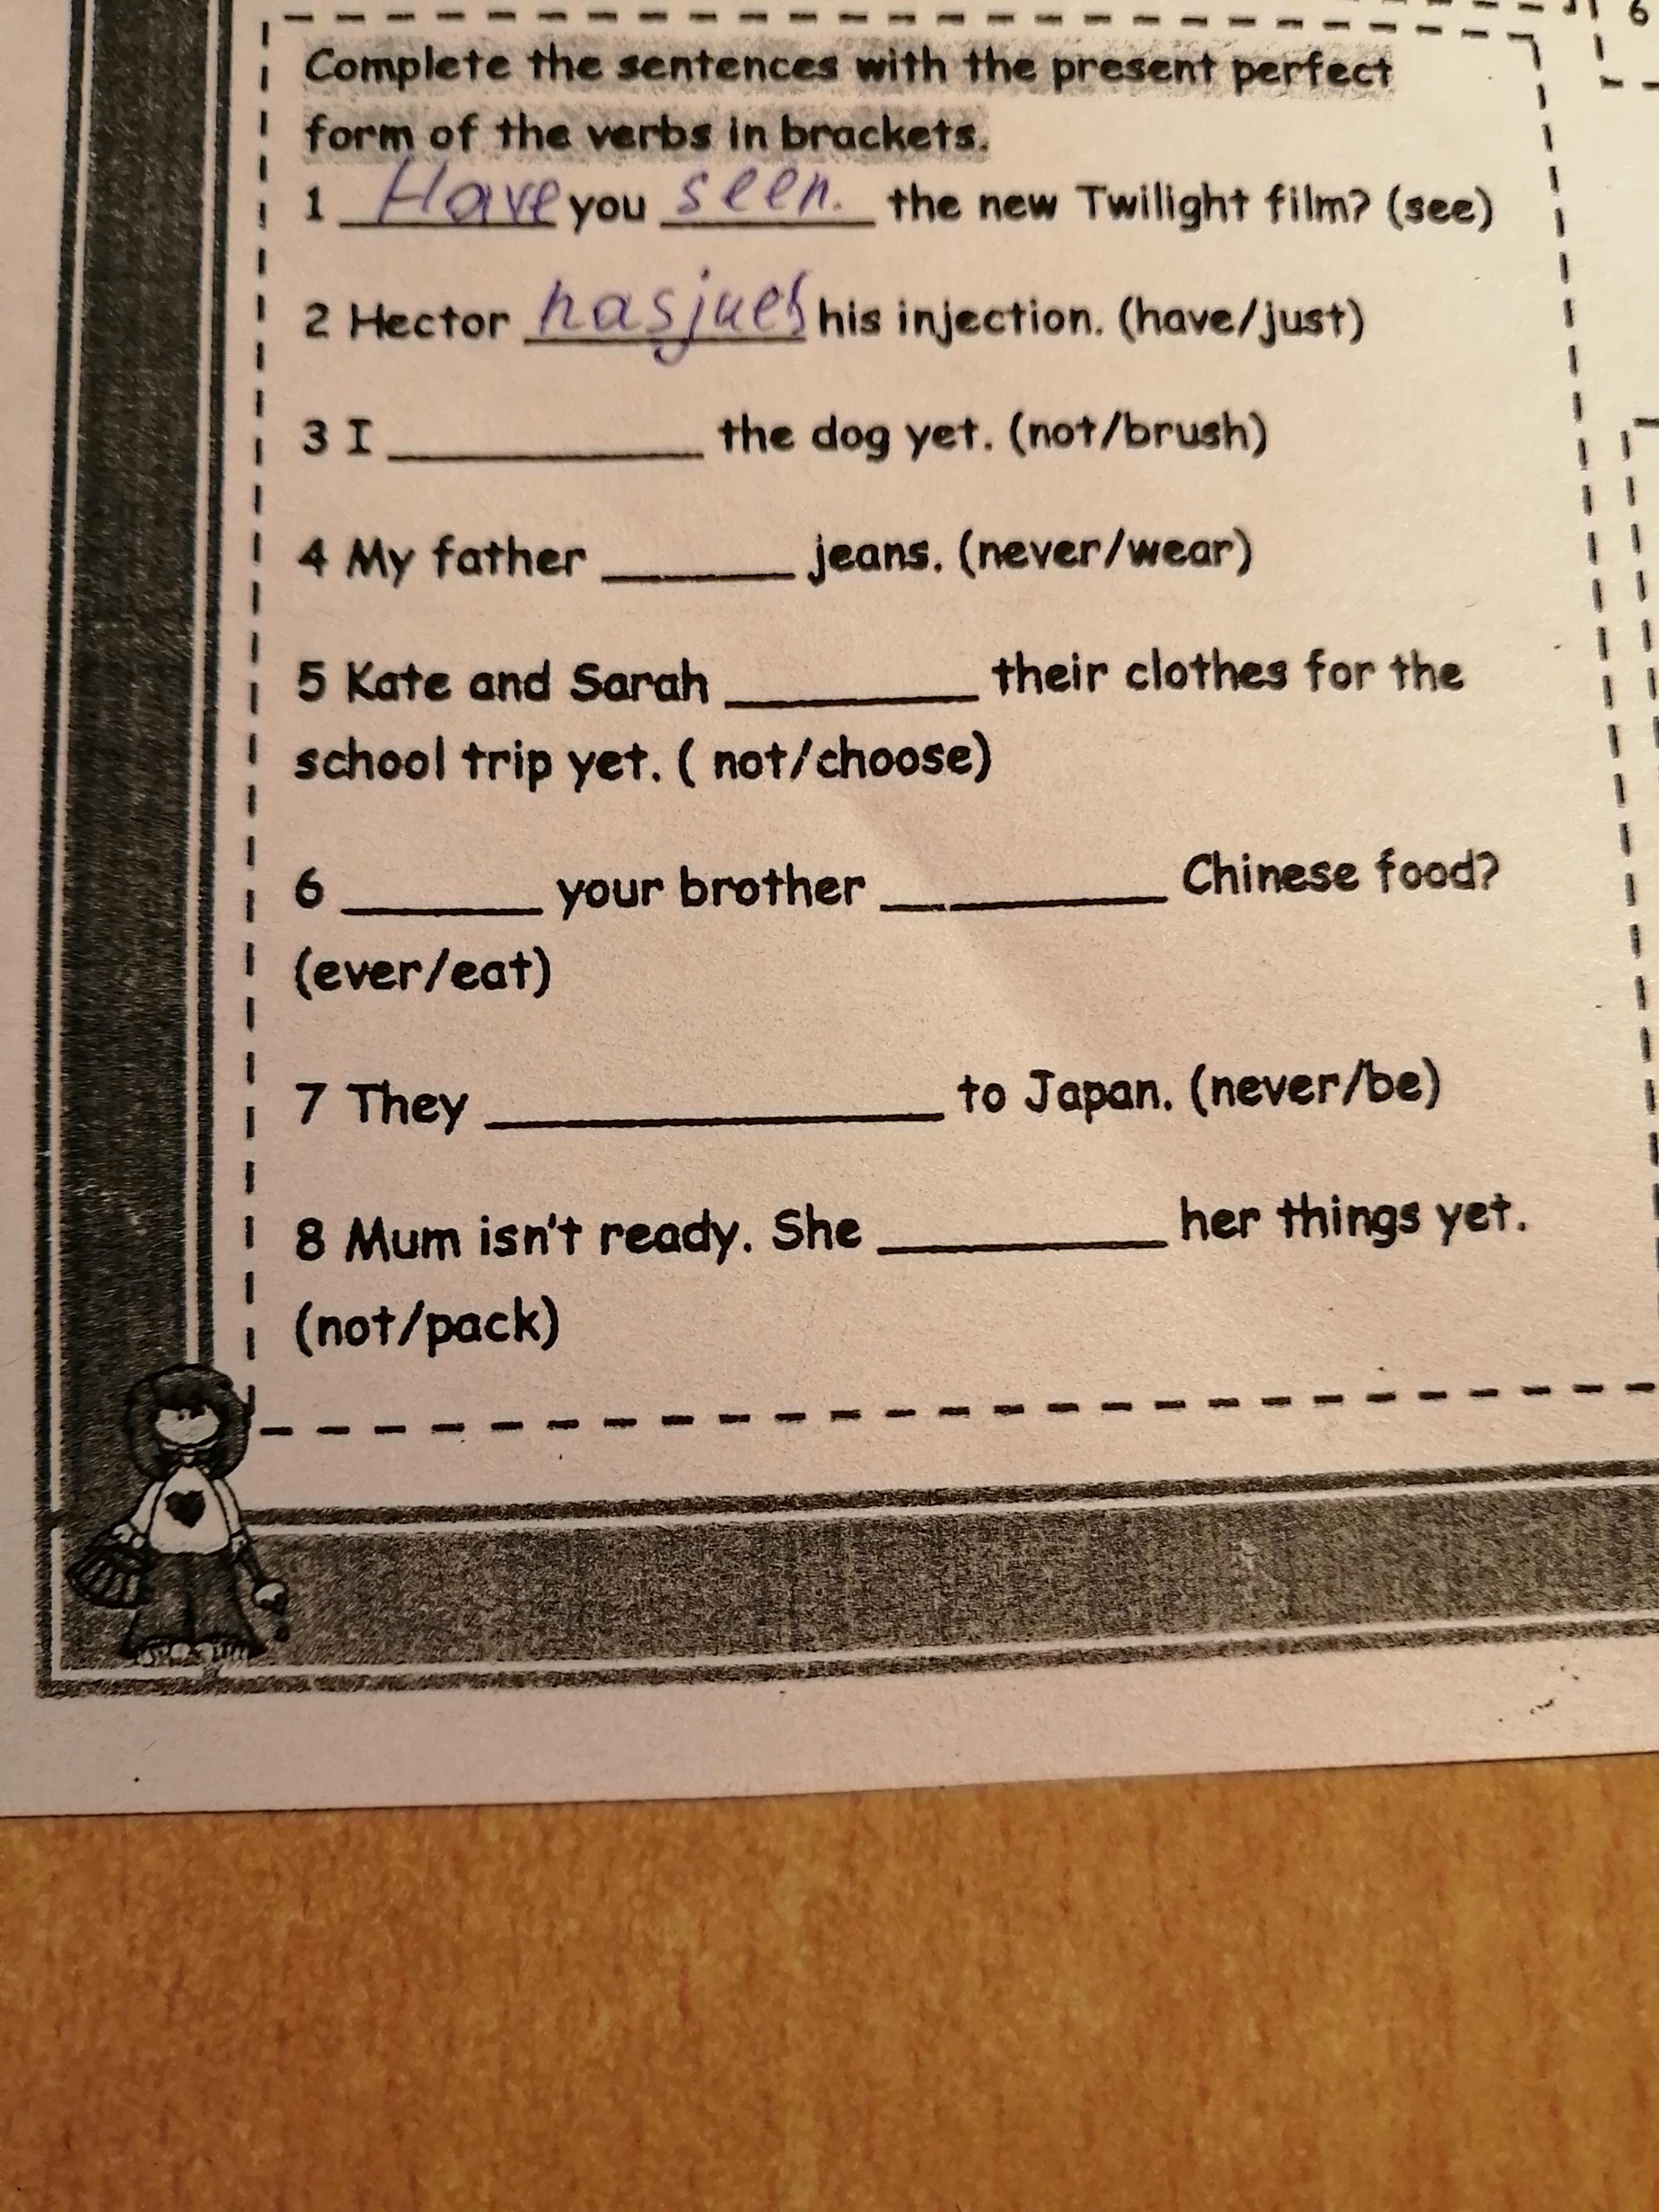 Complete the sentences with the present perfect
form of the verbs in brackets.
1 Have you seen. the new Twilight film? (see)
2 Hector has his injection. (have/just)
3 I ____________ the dog yet. (not/brush)
4 My father _______ jeans. (never/wear)
5 Kate and Sarah _________ their clothes for the
school trip yet. ( not/choose)
6 _______ your brother __________ Chinese food?
(ever/eat)
7 They ________________ to Japan. (never/be)
8 Mum isn't ready. She __________ her things yet.
(not/pack)
6